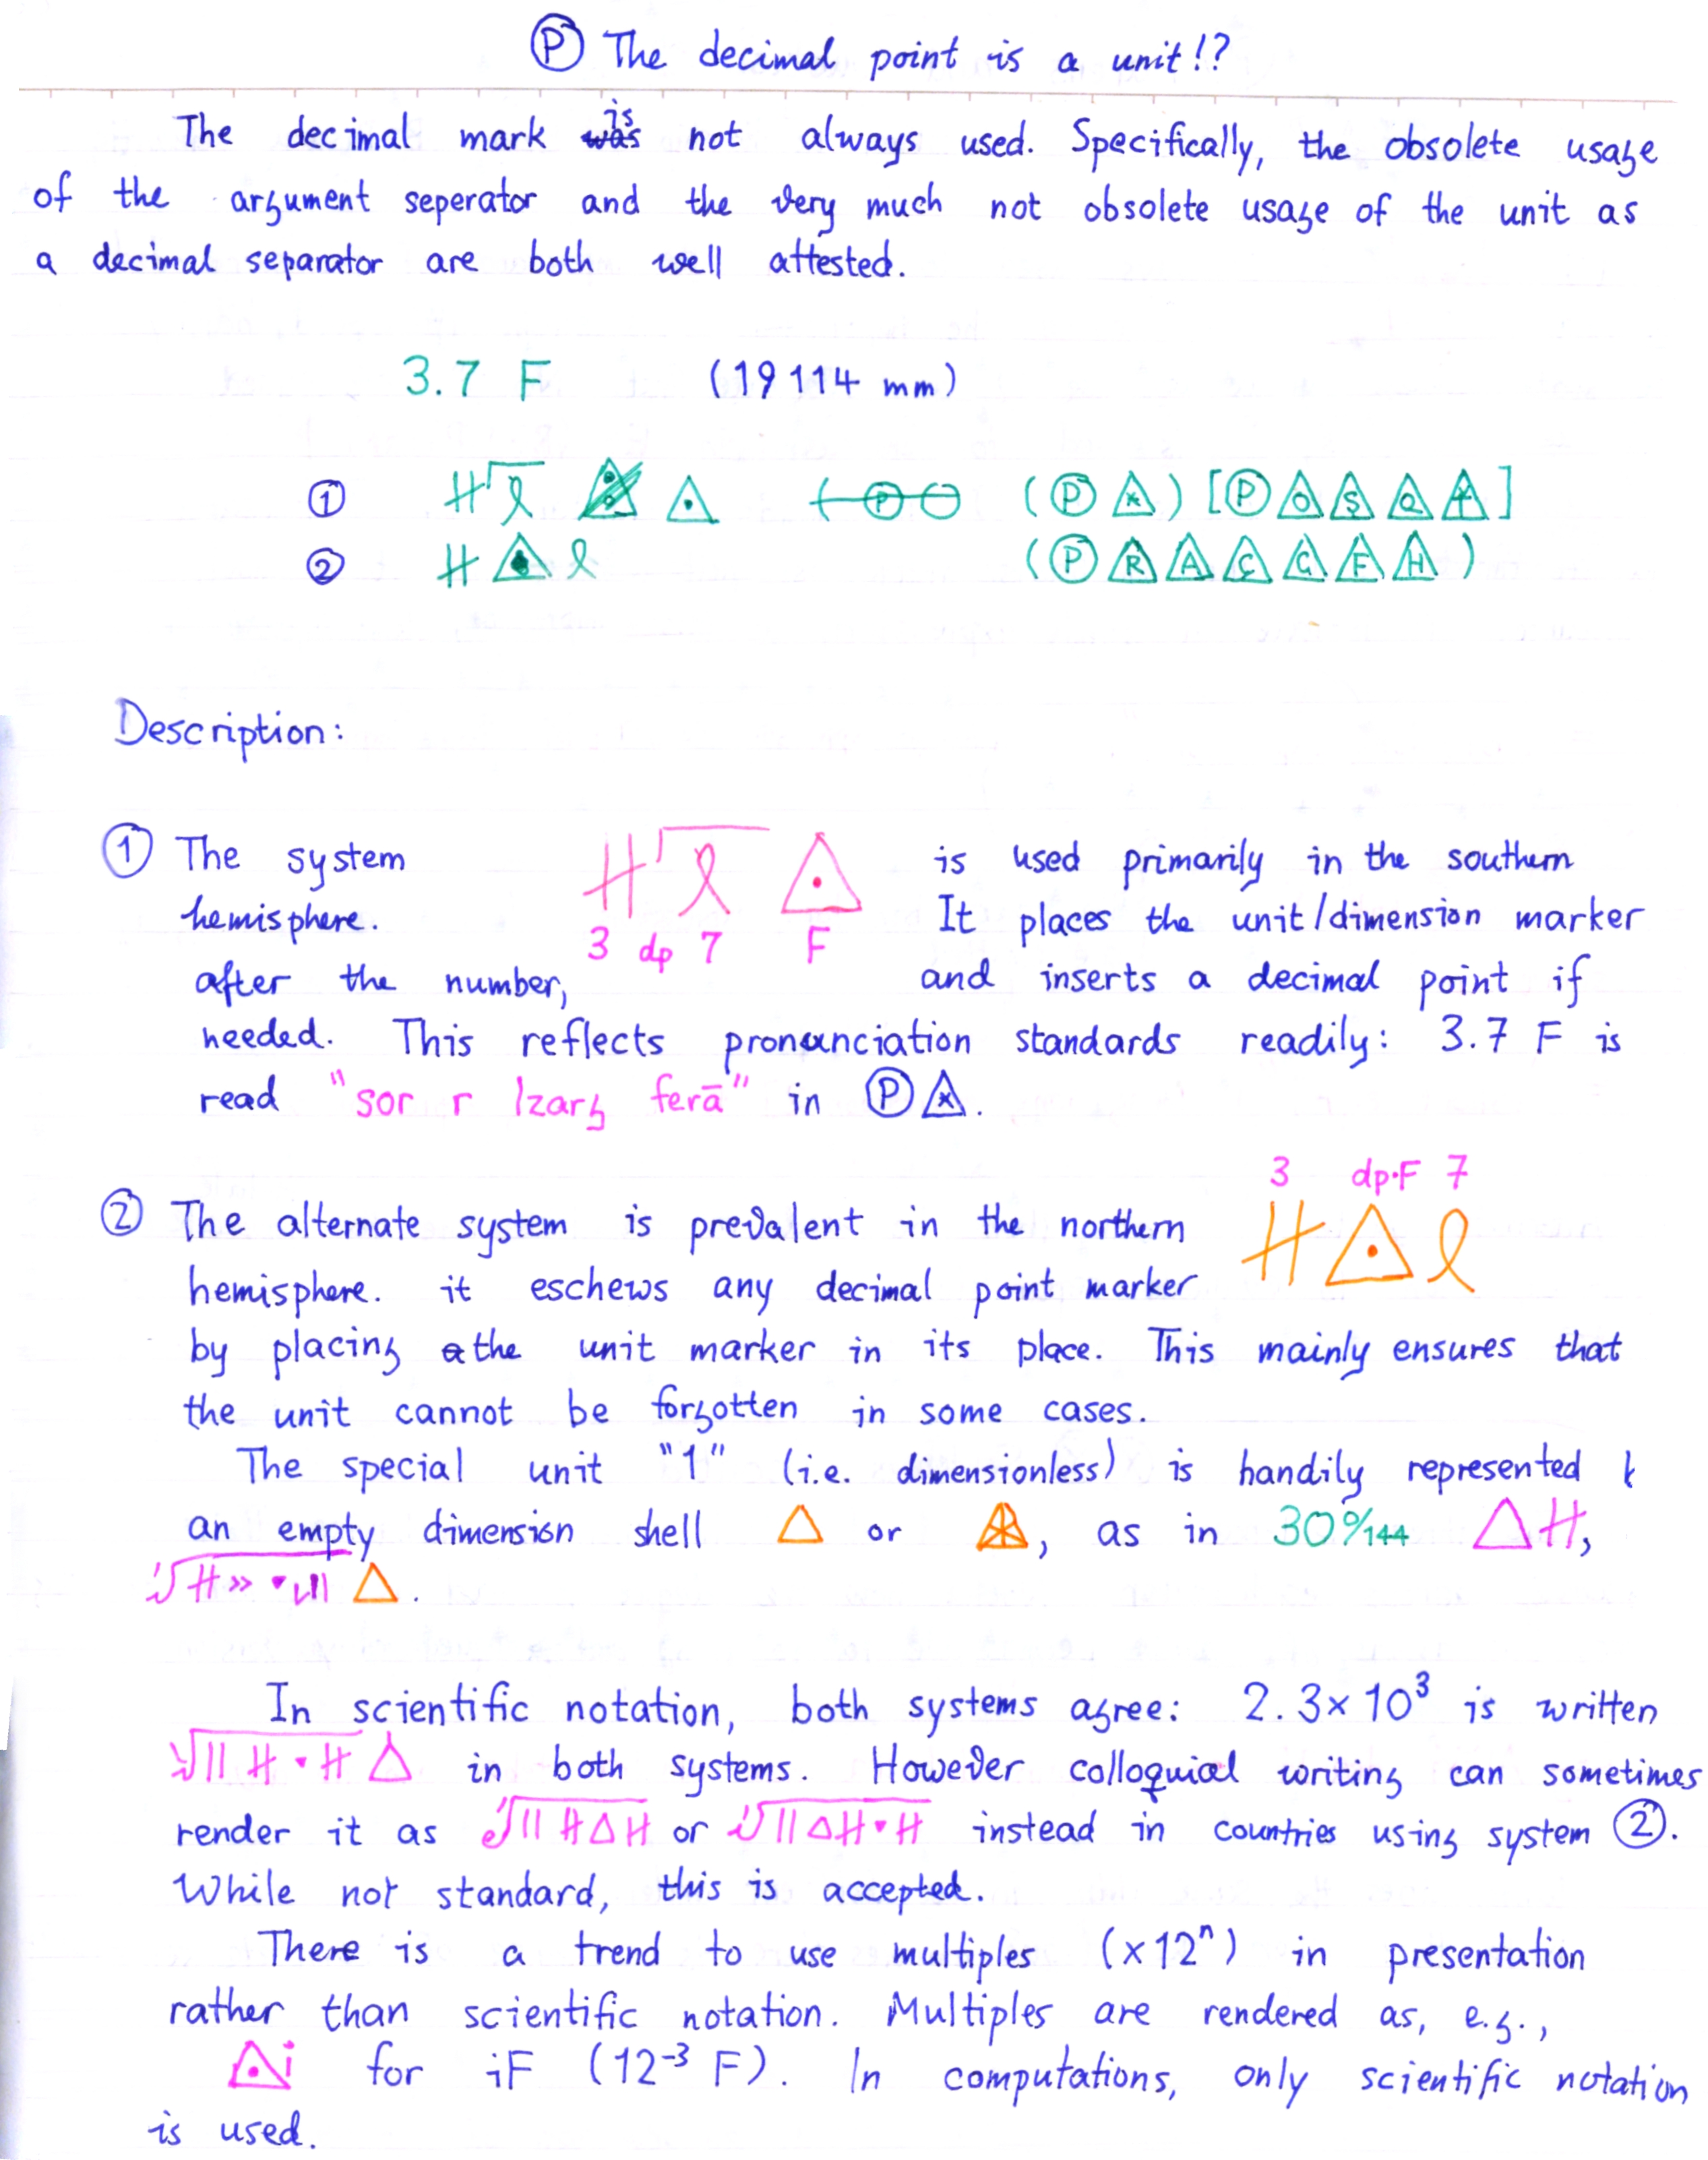 Ⓟ The decimal point is a unit!?
The decimal mark is not always used. Specifically, the obsolete usage
of the argument seperator and the very much not obsolete usage of the unit as
a decimal separator are both well attested.
3.7 F (19 114 mm)
①
② 
Description:
① The system is used primarily in the southern
hemisphere. It places the unit/dimension marker
3 dp 7 F
after the number, and inserts a decimal point if
needed. This reflects pronunciation standards readily: 3.7 F is
read "sor r lzarg ferā" in Ⓟ
3 dp·F 7
② The alternate system is prevalent in the northern
hemisphere. it eschews any decimal point marker
by placing the unit marker in its place. This mainly ensures that
the unit cannot be forgotten in some cases.
The special unit "1" (i.e. dimensionless) is handily represented
an empty dimension shell △ or , as in 30%144
In scientific notation, both systems agree: 2.3×10³ is written
in both systems. However colloquial writing can sometimes
render it as or instead in countries using system ②.
While not standard, this is accepted.
There is a trend to use multiples (×12ⁿ) in presentation
rather than scientific notation. Multiples are rendered as, e.g.,
for iF (12⁻³ F). In computations, only scientific notation
is used.